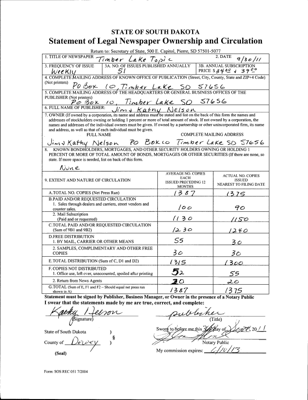 STATE OF SOUTH DAKOTA
Statement of Legal Newspaper Ownership and Circulation
Return to: Secretary of State, 500 E. Capitol, Pierre, SD 57501-5077
1. TITLE OF NEWSPAPER Timber Lake Topic 2. DATE 9/30/11
3. FREQUENCY OF ISSUE Weekly
3A. NO. OF ISSUES PUBLISHED ANNUALLY 51
3B. ANNUAL SUBSCRIPTION PRICE
4. COMPLETE MAILING ADDRESS OF KNOWN OFFICE OF PUBLICATION (Street, City, County, State and ZIP+4 Code)
(Not printers) PO Box 10, Timber Lake SD 57656
5. COMPLETE MAILING ADDRESS OF THE HEADQUARTERS OF GENERAL BUSINESS OFFICES OF THE
PUBLISHER (Not printers) PO Box 10, Timber Lake SD 57656
6. FULL NAME OF PUBLISHER: Jim & Kathy Nelson
7. OWNER (If owned by a corporation, its name and address must be stated and list on the back of this form the names and
addresses of stockholders owning or holding 1 percent or more of total amount of stock. If not owned by a corporation, the
names and addresses of the individual owners must be given. If owned by a partnership or other unincorporated firm, its name
and address, as well as that of each individual must be given.
FULL NAME COMPLETE MAILING ADDRESS
Jim & Kathy Nelson PO Box 10 Timber Lake SD 57656
8. KNOWN BONDHOLDERS, MORTGAGES, AND OTHER SECURITY HOLDERS OWNING OR HOLDING 1
PERCENT OR MORE OF TOTAL AMOUNT OF BONDS, MORTGAGES OR OTHER SECURITIES (If there are none, so
state. If more space is needed, list on back of this form.
None
9. EXTENT AND NATURE OF CIRCULATION
AVERAGE NO. COPIES EACH ISSUED PRECEDING 12 MONTHS
ACTUAL NO. COPIES ISSUED NEAREST TO FILING DATE
A. TOTAL NO. COPIES (Net Press Run) 1387 1375
B. PAID AND/OR REQUESTED CIRCULATION
1. Sales through dealers and carriers, street vendors and
counter sales. 100 90
2. Mail Subscriptions
(Paid and or requested) 1130 1150
C. TOTAL PAID AND/OR REQUESTED CIRCULATION
(Sum of 9B1 and 9B2) 1230 1240
D. FREE DISTRIBUTION
1. BY MAIL, CARRIER OR OTHER MEANS 55 30
2. SAMPLES, COMPLIMENTARY AND OTHER FREE
COPIES 30 30
E. TOTAL DISTRIBUTION (Sum of C, D1 and D2) 1315 1300
F. COPIES NOT DISTRIBUTED
1. Office use, left over, unaccounted, spoiled after printing 52 55
2. Return from News Agents 20 20
G. TOTAL (Sum of E, F1 and F2 - Should equal net press run
shown in A) 1387 1375
Statement must be signed by Publisher, Business Manager, or Owner in the presence of a Notary Public
I swear that the statements made by me are true, correct, and complete:
Kathy Nelson publisher
(Signature) (Title)
State of South Dakota )
) §
County of Dewey )
(Seal)
Sworn to before me this day of Sept. 2011
Notary Public
My commission expires:
Form: SOS REC 051 7/2004